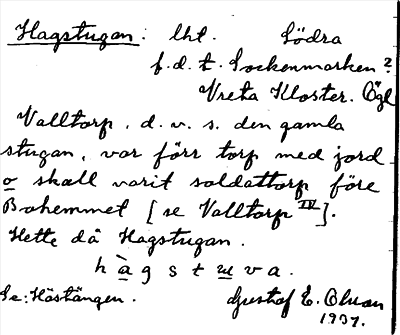 Hagstugan: lht. Södra
f.d.t. Sockenmarken?
Vreta Kloster. Ögl
Valltorp, d.v.s. den gamla
stugan, var förr torp med jord
o skall varit soldattorp före
Bohemmet [se Valltorp IV].
Hette då Hagstugan.
hàgstuva.
Se: Hästängen. Gustaf E. Olsson
1937.